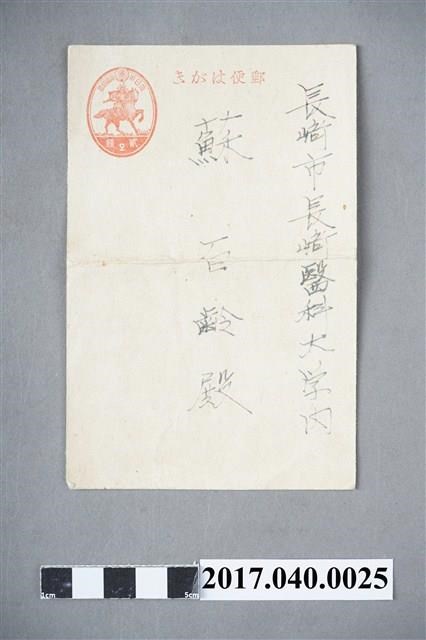 郵便はがき
貳2錢
長崎市長崎醫科大学内
蘇百齡殿
1cm
5cm
2017.040.0025